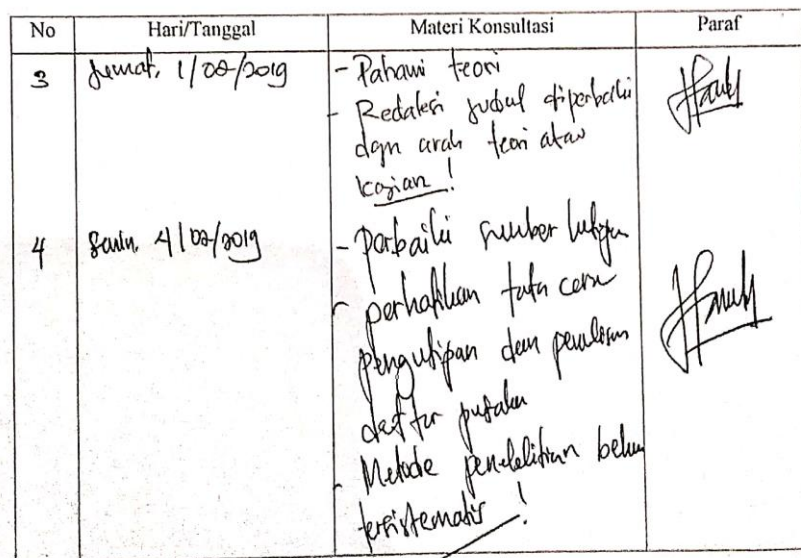 No Hari/Tanggal Materi Konsultasi Paraf
3 Jumat, 1/02/2019 - Pahami teori
- Redaksi judul diperbaiki
dgn arah teori atau
kajian !
4 Senin, 4/02/2019 - Perbaiki sumber kutipan
- perhatikan tata cara
pengutipan dan penulisan
daftar pustaka
- Metode penelelitian belum
tersistematis !